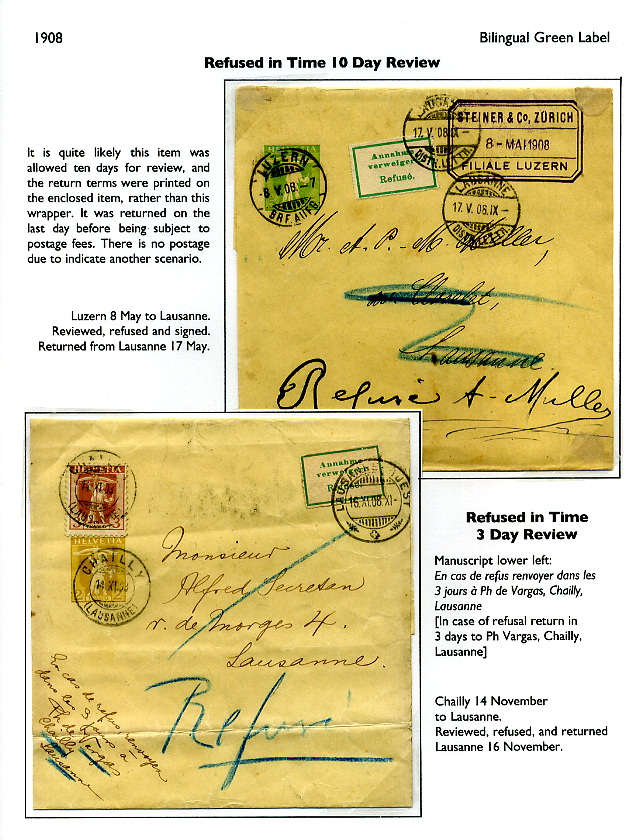 1908
Bilingual Green Label
Refused in Time 10 Day Review
It is quite likely this item was
allowed ten days for review, and
the return terms were printed on
the enclosed item, rather than this
wrapper. It was returned on the
last day before being subject to
postage fees. There is no postage
due to indicate another scenario.
Luzern 8 May to Lausanne.
Reviewed, refused and signed.
Returned from Lausanne 17 May.
LUZERN
8 V. 08.-7
BRF.AUFG
Annahme
verweigert
Refusé.
17. V. 08.IX-
STEINER & Co, ZÜRICH
8 - MAI 1908
FILIALE LUZERN
LAUSANNE
17. V. 08.IX-
Mr. A. P. M. Muller,
Lausanne
Refusé A. Muller
HELVETIA
(LAUSANNE)
HELVETIA
CHAILLY
14 XI.08
(LAUSANNE)
Annahme
verweigert
LAUSANNE
16.XI.08 XI-
Monsieur
Alfred Secretan
r. de Morges 4.
Lausanne.
Refusé
En cas de refus renvoyer
dans les 3 jours à
Ph de Vargas
Chailly
Lausanne
Refused in Time
3 Day Review
Manuscript lower left:
En cas de refus renvoyer dans les
3 jours à Ph de Vargas, Chailly,
Lausanne
[In case of refusal return in
3 days to Ph Vargas, Chailly,
Lausanne]
Chailly 14 November
to Lausanne.
Reviewed, refused, and returned
Lausanne 16 November.